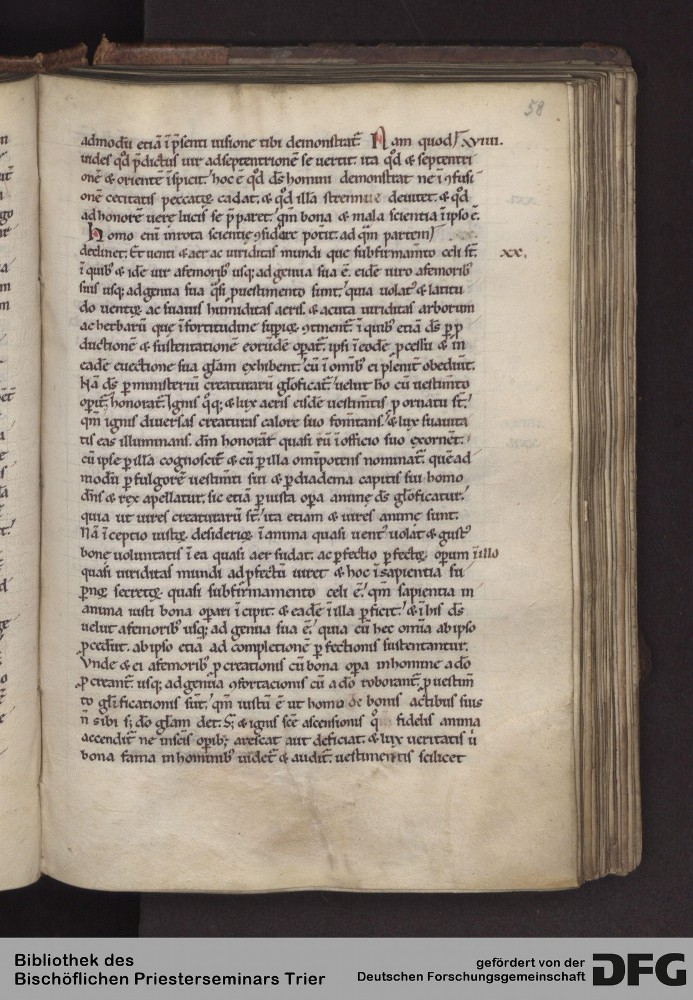 58
admodū etiā ī p̄senti uisione tibi demonstrat̄. Nam quod xviiii.
uides qd̄ p̄dictus uir adseptentrionē se uertit. ita qd̄ & septentri
onē & orientē īspicit. hoc ē qd̄ ds̄ homini demonstrat ne ī ꝯfusi
onē cecitatis peccatoꝝ cadat. & qd̄ illa strennue deuitet. & qd̄
adhonorē uerę lucis se p̄paret. qm̄ bona & mala scientia ī ipso ē.
Homo eni inrota scientię ꝯsidare potit. ad qm̄ partem
declinet. Et uenti & aer ac uiriditas mundi que subfirmam̄to celi st̄. xx.
ī quibꝰ & idē uir afemoribꝰ usqꝫ ad genua sua ē. eidē uiro afemoribꝰ
suis usqꝫ ad genua sua q̄si ꝓ uestimento sunt. quia uolatꝰ & latitu
do uentoꝝ ac suauis humiditas aeris. & acuta uiriditas arborum
ac herbarū que ī fortitudine suꝑioꝝ ꝯtinent̄. ī quibꝰ etiā ds̄ ꝑ ꝓ
ductionē & sustentationē eorūdē oꝑat̄. ipsi ī eodē ꝓcessu & in
eadē euectione sua gl̄am exhibent. cū ī omībꝰ ei plenit̄ obediūt.
Nā ds̄ ꝑ ministeriū creaturarū glorificat̄. uelut hō cū uestim̄to
opit̄. honorat̄. Ignis qꝫ & lux aeris eisdē uestim̄tis ꝓ ornatu st̄.
qm̄ ignis diuersas creaturas calore suo fomītans. & lux suauita
tis eas illuminans. dn̄m honorāt quasi eū ī officio suo exornēt.
cū ipse ꝑ illa cognoscit̄ & cū ꝑ illa omīpotens nominat̄. quēad
modū ꝑ fulgorē uestim̄ti sui & ꝑ diadema capitis sui homo
dn̄s & rex apellatur. sic etiā ꝑ iusta oꝑa animę ds̄ glorificatur.
quia ut uires creaturarū st̄. ita etiam & uires animę sunt.
Nā ī ceptio iustoꝝ desiderioꝝ ī anima quasi uentꝰ uolat & gustꝰ
bonę voluntatis ī ea quasi aer sudat. ac ꝑfectio ꝑfectoꝝ operum ī illo
quasi uiriditas mundi ad ꝑfectū uiret & hoc ī sapientia su
ꝑnoꝝ secretoꝝ quasi subfirmamento celi ē. qm̄ sapientia in
anima iusti bona oꝑari ī cipit. & eadē ī illa ꝑficit̄. & ī his ds̄
uelut afemoribꝰ usqꝫ ad genua sua ē. quia cū hec om̄ia ab ipso
ꝓcedūt. ab ipso etiā ad completionē ꝑfectionis sustentantur.
Vnde & ei afemoribꝰ ꝓcreationis cū bona oꝑa in homine a dō
ꝓcreant̄. usqꝫ ad genua ꝯfortacionis cū a dō roborant̄. ꝓ uestim̄
to glorificationis sūt. qm̄ iustū ē ut homo de bonis actibus suis
n̄ sibi sꝫ dō gl̄am det. Sꝫ & ignis scē ascensionis fidelis anima
accendit̄ ne in suis opībꝫ arescat aut deficiat. & lux ueritatis ī
bona fama in hominibꝰ uidet̄ & audit̄. uestimentis scilicet
Bibliothek des
Bischöflichen Priesterseminars Trier
gefördert von der
Deutschen Forschungsgemeinschaft
DFG